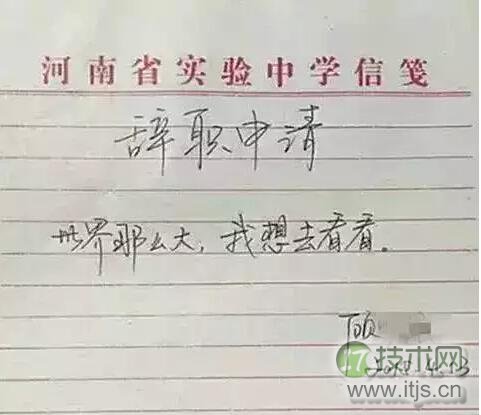 河南省实验中学信笺
辞职申请
世界那么大，我想去看看。
顾
技术网
www.itjs.cn